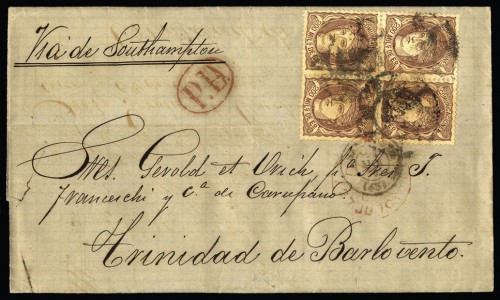 Via de Southampton
P.D.
Sres. Gerold et Urich, pa. Sres J.
Franceschi y Ca. de Carupano
Trinidad de Barlovento.